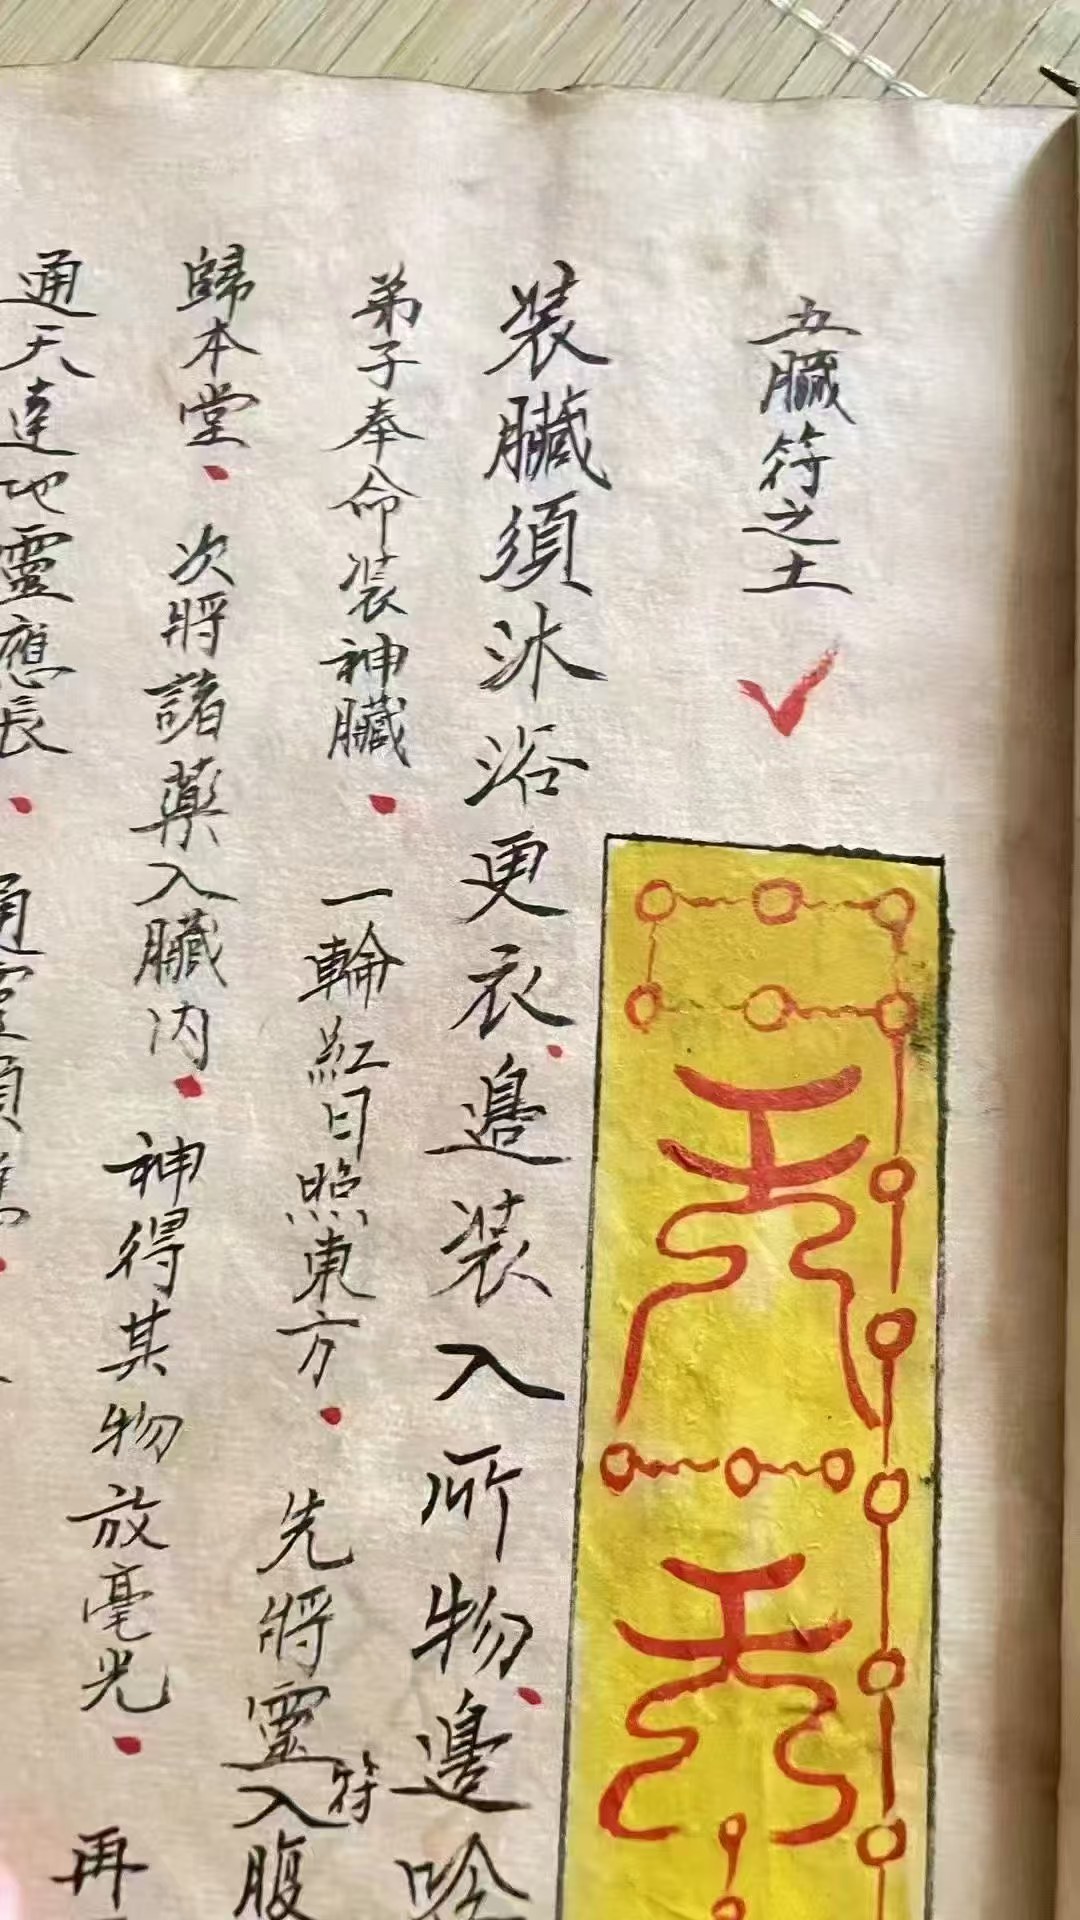 五臟符之土
装臟須沐浴更衣邊装入所物邊吟
弟子奉命装神臟 一輪紅日照東方 先將靈符入腹
歸本堂 次將諸藥入臟内 神得其物放毫光 再
通天達地靈應長 通靈顯